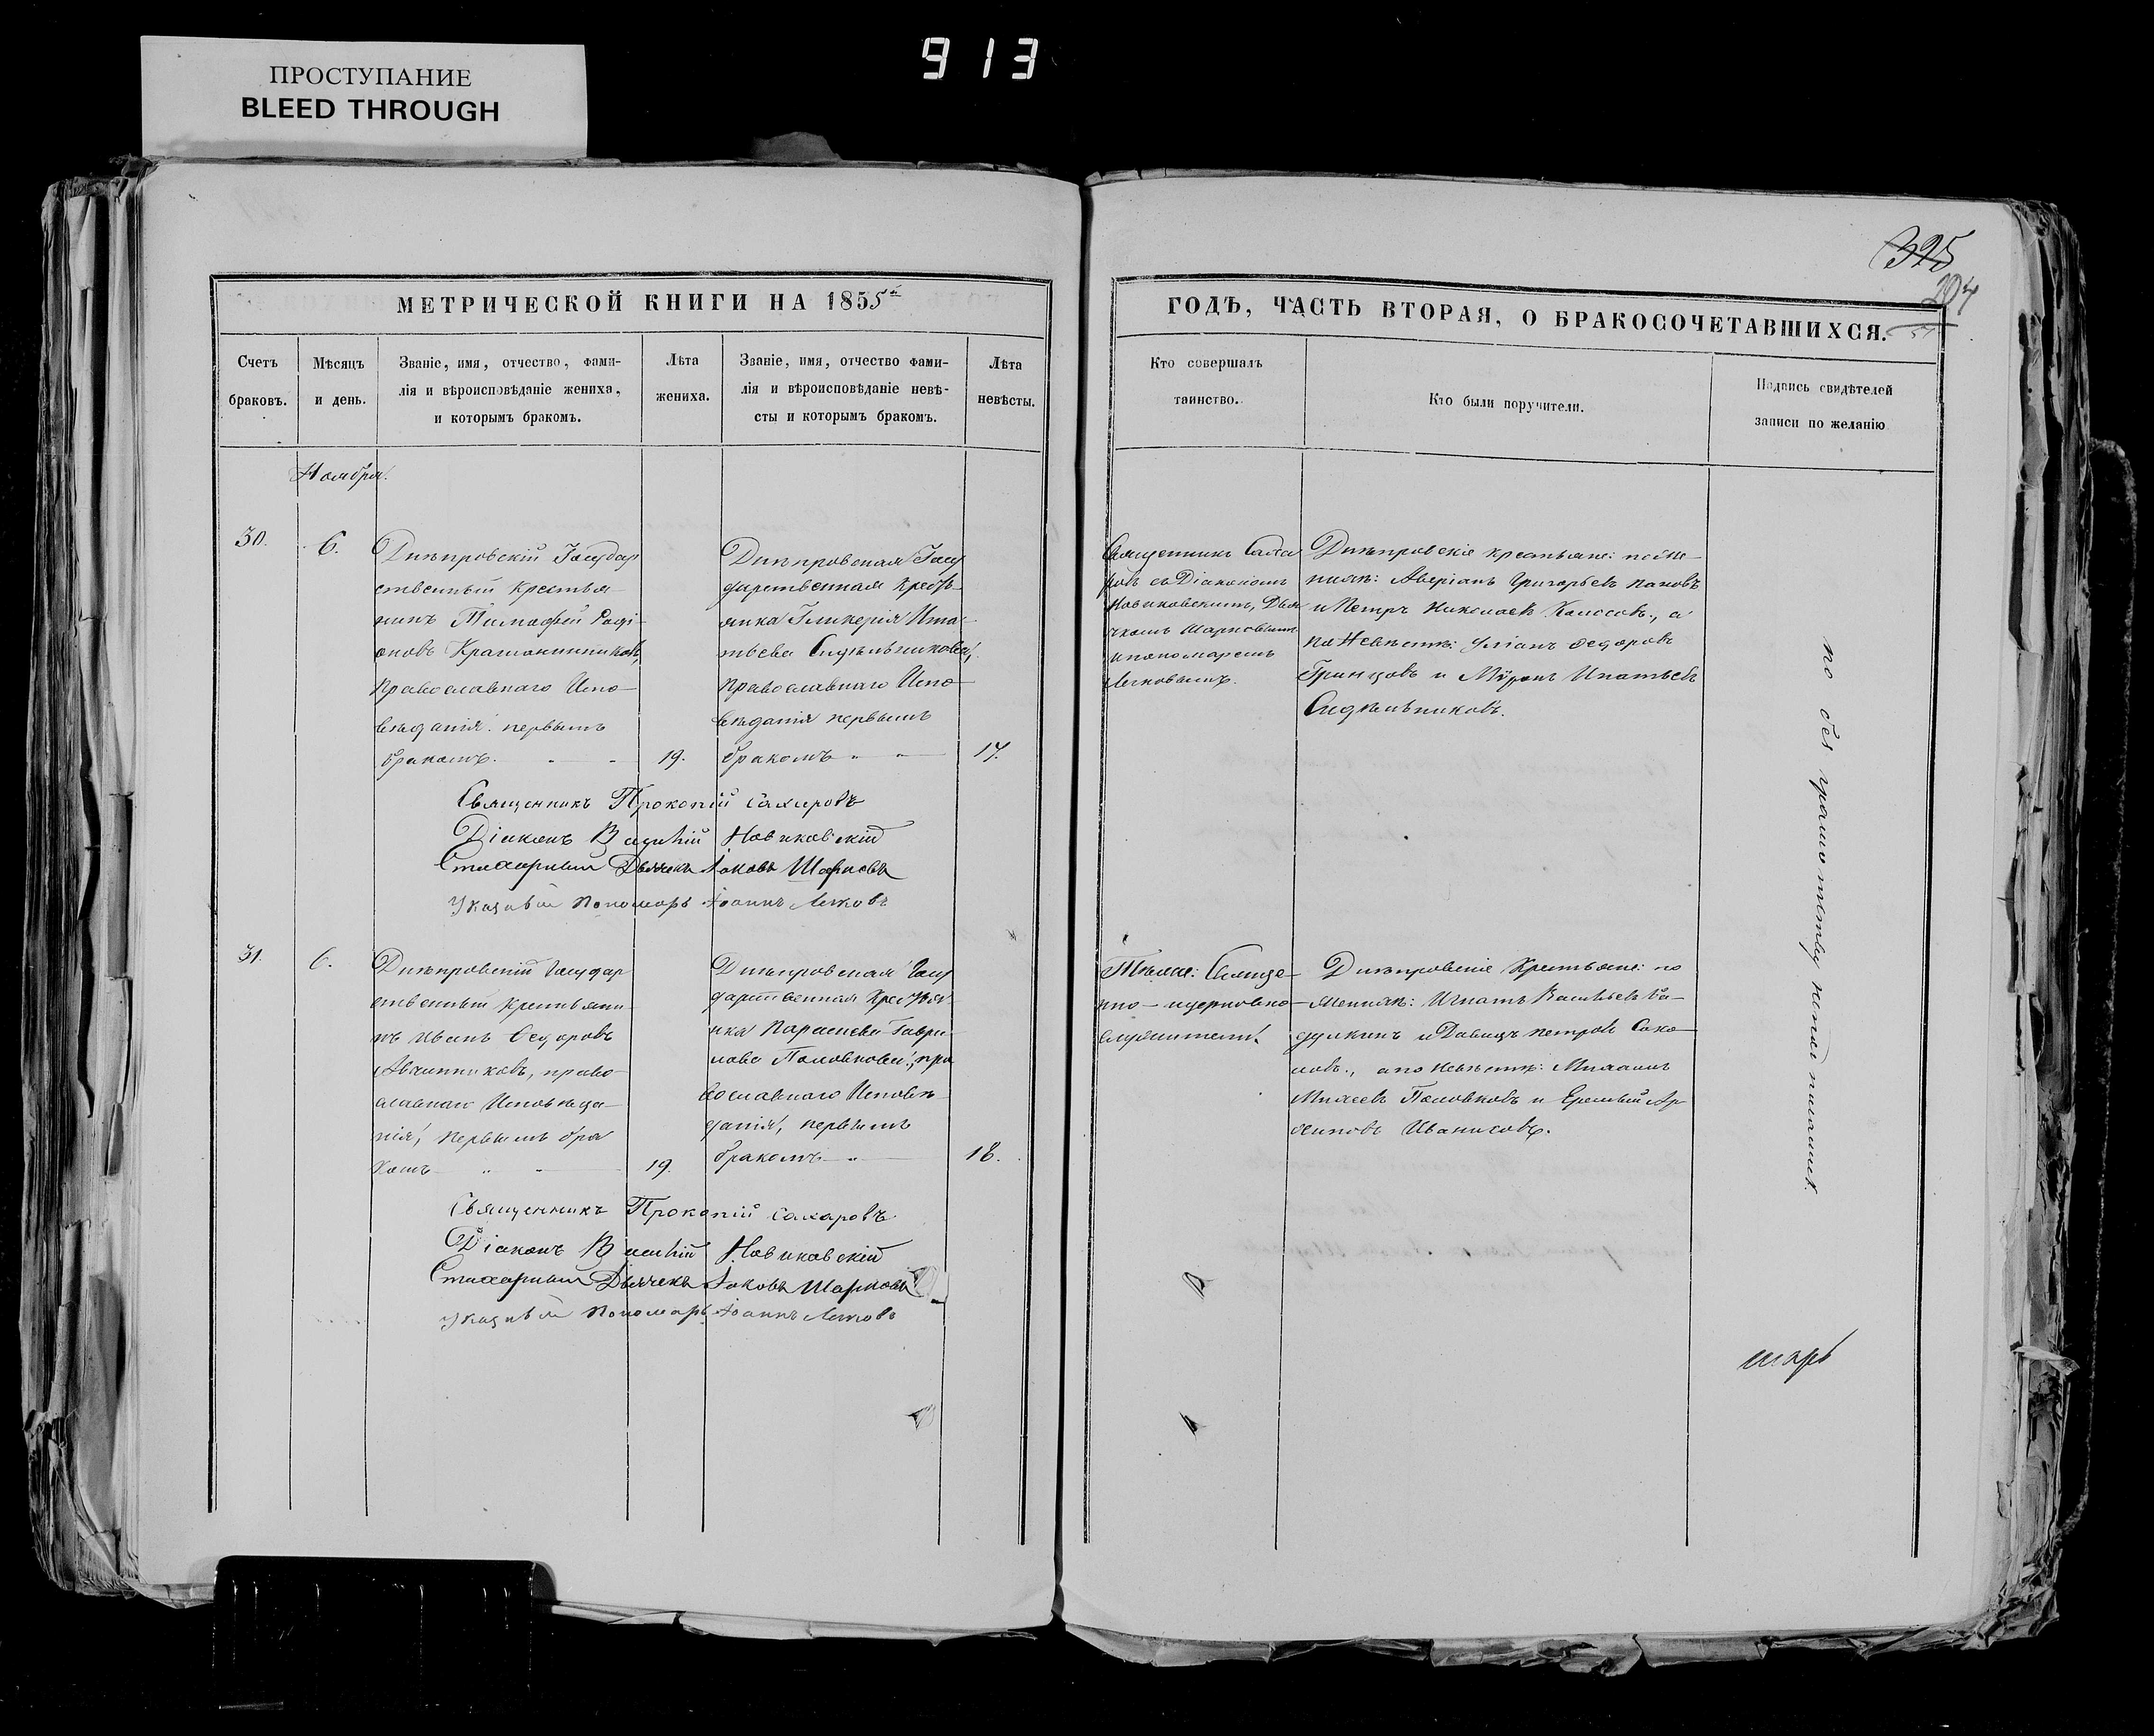 ПРОСТУПАНИЕ
BLEED THROUGH
913
325
204
МЕТРИЧЕСКОЙ КНИГИ НА 1855
ГОДЪ, ЧАСТЬ ВТОРАЯ, О БРАКОСОЧЕТАВШИХСЯ.
Счетъ
браковъ.
Мѣсяцъ
и день.
Званіе, имя, отчество, фами-
лія и вѣроисповѣданіе жениха,
и которымъ бракомъ.
Лѣта
жениха.
Званіе, имя, отчество фами-
лія и вѣроисповѣданіе невѣ-
сты и которымъ бракомъ.
Лѣта
невѣсты.
Кто совершалъ
таинство.
Кто были поручители.
Подпись свидѣтелей
записи по желанію
Ноября.
30.
6.
Днѣпровскій Государ
ственный Крестья
нинъ Тимофей Родi-
оновъ
Православнаго Испо-
вѣданія. первымъ
бракомъ.
19.
Днѣпровская Госу
дарственная Кресть-
янка Гликерія Ипа-
тьева Сидѣльникова,
Православнаго Испо-
вѣданія первымъ
бракомъ
17.
Священникъ Саха
ровъ съ Діакономъ
Новиковскимъ, Дья
чкомъ Шарковымъ
и пономаремъ
Днѣпровскіе крестьяне: по Же-
нихѣ: Аверіанъ Григорьевъ Пановъ
и Петръ Николаевъ а
по Невѣстѣ: Уліанъ Федоровъ
и Мѵронъ Ипатьевъ
Сидѣльниковъ.
Священникъ Прокопій Сахаровъ
Діаконъ Василій Новиковскій
Стихарный Дьячекъ Іаковъ Шарковъ
Указный Пономарь Іоаннъ
31.
6.
Днѣпровскій Государ
ственный Крестьяни-
нъ Иванъ Федоровъ
право-
славнаго Исповѣда-
нія, первымъ бра
комъ
19.
Днѣпровская Госу
дарственная Крестья
нка Параскева Гаври-
лова Половкова, пра
вославнаго Исповѣ-
данія, первымъ
бракомъ
18.
Тѣже: Свяще-
нно-церковно-
служители.
Днѣпровскіе Крестьяне: по
Женихѣ: Игнатъ Васильевъ
и Давидъ Петровъ Соко-
ловъ., а по невѣстѣ:
Половковъ и
Священникъ Прокопій Сахаровъ
Діаконъ Василій Новиковскій
Стихарный Дьячекъ Іаковъ Шарковъ
Указный Пономарь Іоаннъ
по безграмотству